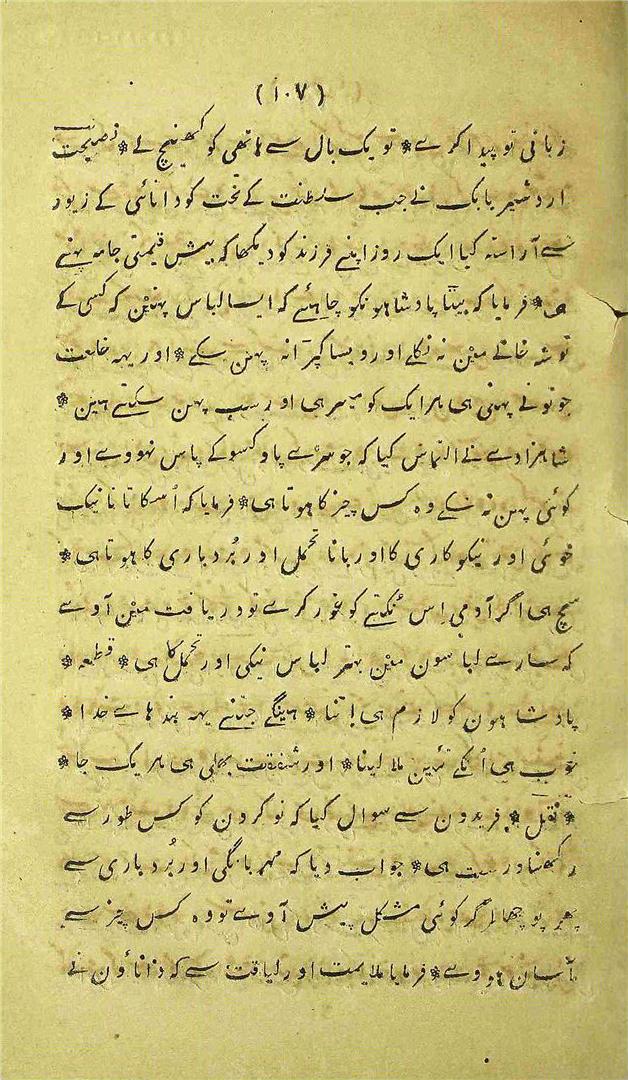 (١٠٧)
زبانی تو پیدا کرے * تو یک بال سے ہاتھی کو کھینچ لے * نصیحت
اردشیر بابک نے جب سلطنت کے تخت کو دانائی کے زیور
سے آراستہ کیا ایک روز اپنے فرزند کو دیکھا کہ بیش قیمتی جامہ پہنے
ہی * فرمایا کہ بیٹا پادشاہونکو چاہئے کہ ایسا لباس پہنیں کہ کسی کے
توشہ خانے میں نہ نکلے اور ویسا کپڑا نہ پہن سکے * اور یہہ خلعت
جو تونے پہنی ہی ہر ایک کو میسر ہی اور سب پہن سکتے ہین *
شاہزادے نے التماس کیا کہ جو میرے پاو کسو کے پاس نہووے اور
کوئی پہن نہ سکے وہ کس چیز کا ہوتا ہی * فرمایا کہ اُسکا تانا نیک
خوئی اور نیکوکاری کا اور بانا تحمل اور بُردباری کا ہوتا ہی *
سچ ہی اگر آدمی اِس نُکتے کو غور کرے تو دریافت میں آوے
کہ سارے لباسون میں بہتر لباس نیکی اور تحمل کا ہی * قطعہ *
پادشاہون کو لازم ہی اِتنا * ہینگے جتنے یہہ بندہاے خدا *
خوب ہی اُنکے تئین ملا لینا * اور شفقت بھلی ہی ہر یک جا *
* نقل * فریدون سے سوال کیا کہ نوکرون کو کس طور سے
رکھنا درست ہی * جواب دیا کہ مہربانگی اور بُردباری سے
پھر پوچھا اگر کوئی مشکل پیش آوے تو وہ کس چیز سے
آسان ہووے * فرمایا ملایمت اور لیاقت سے کہ داناؤن نے